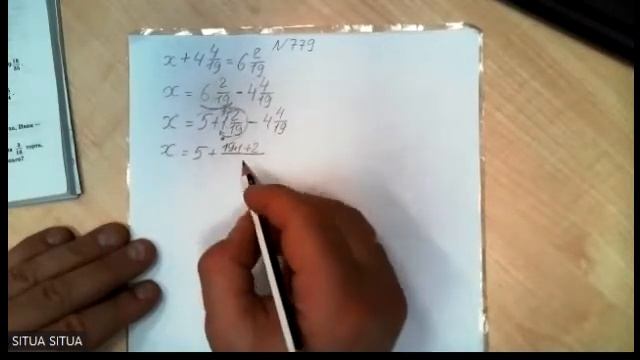 N779
x + 4 4/19 = 6 2/19
x = 6 2/19 - 4 4/19
x = 5 + 1 2/19 - 4 4/19
x = 5 + 19·1+2
SITUA SITUA